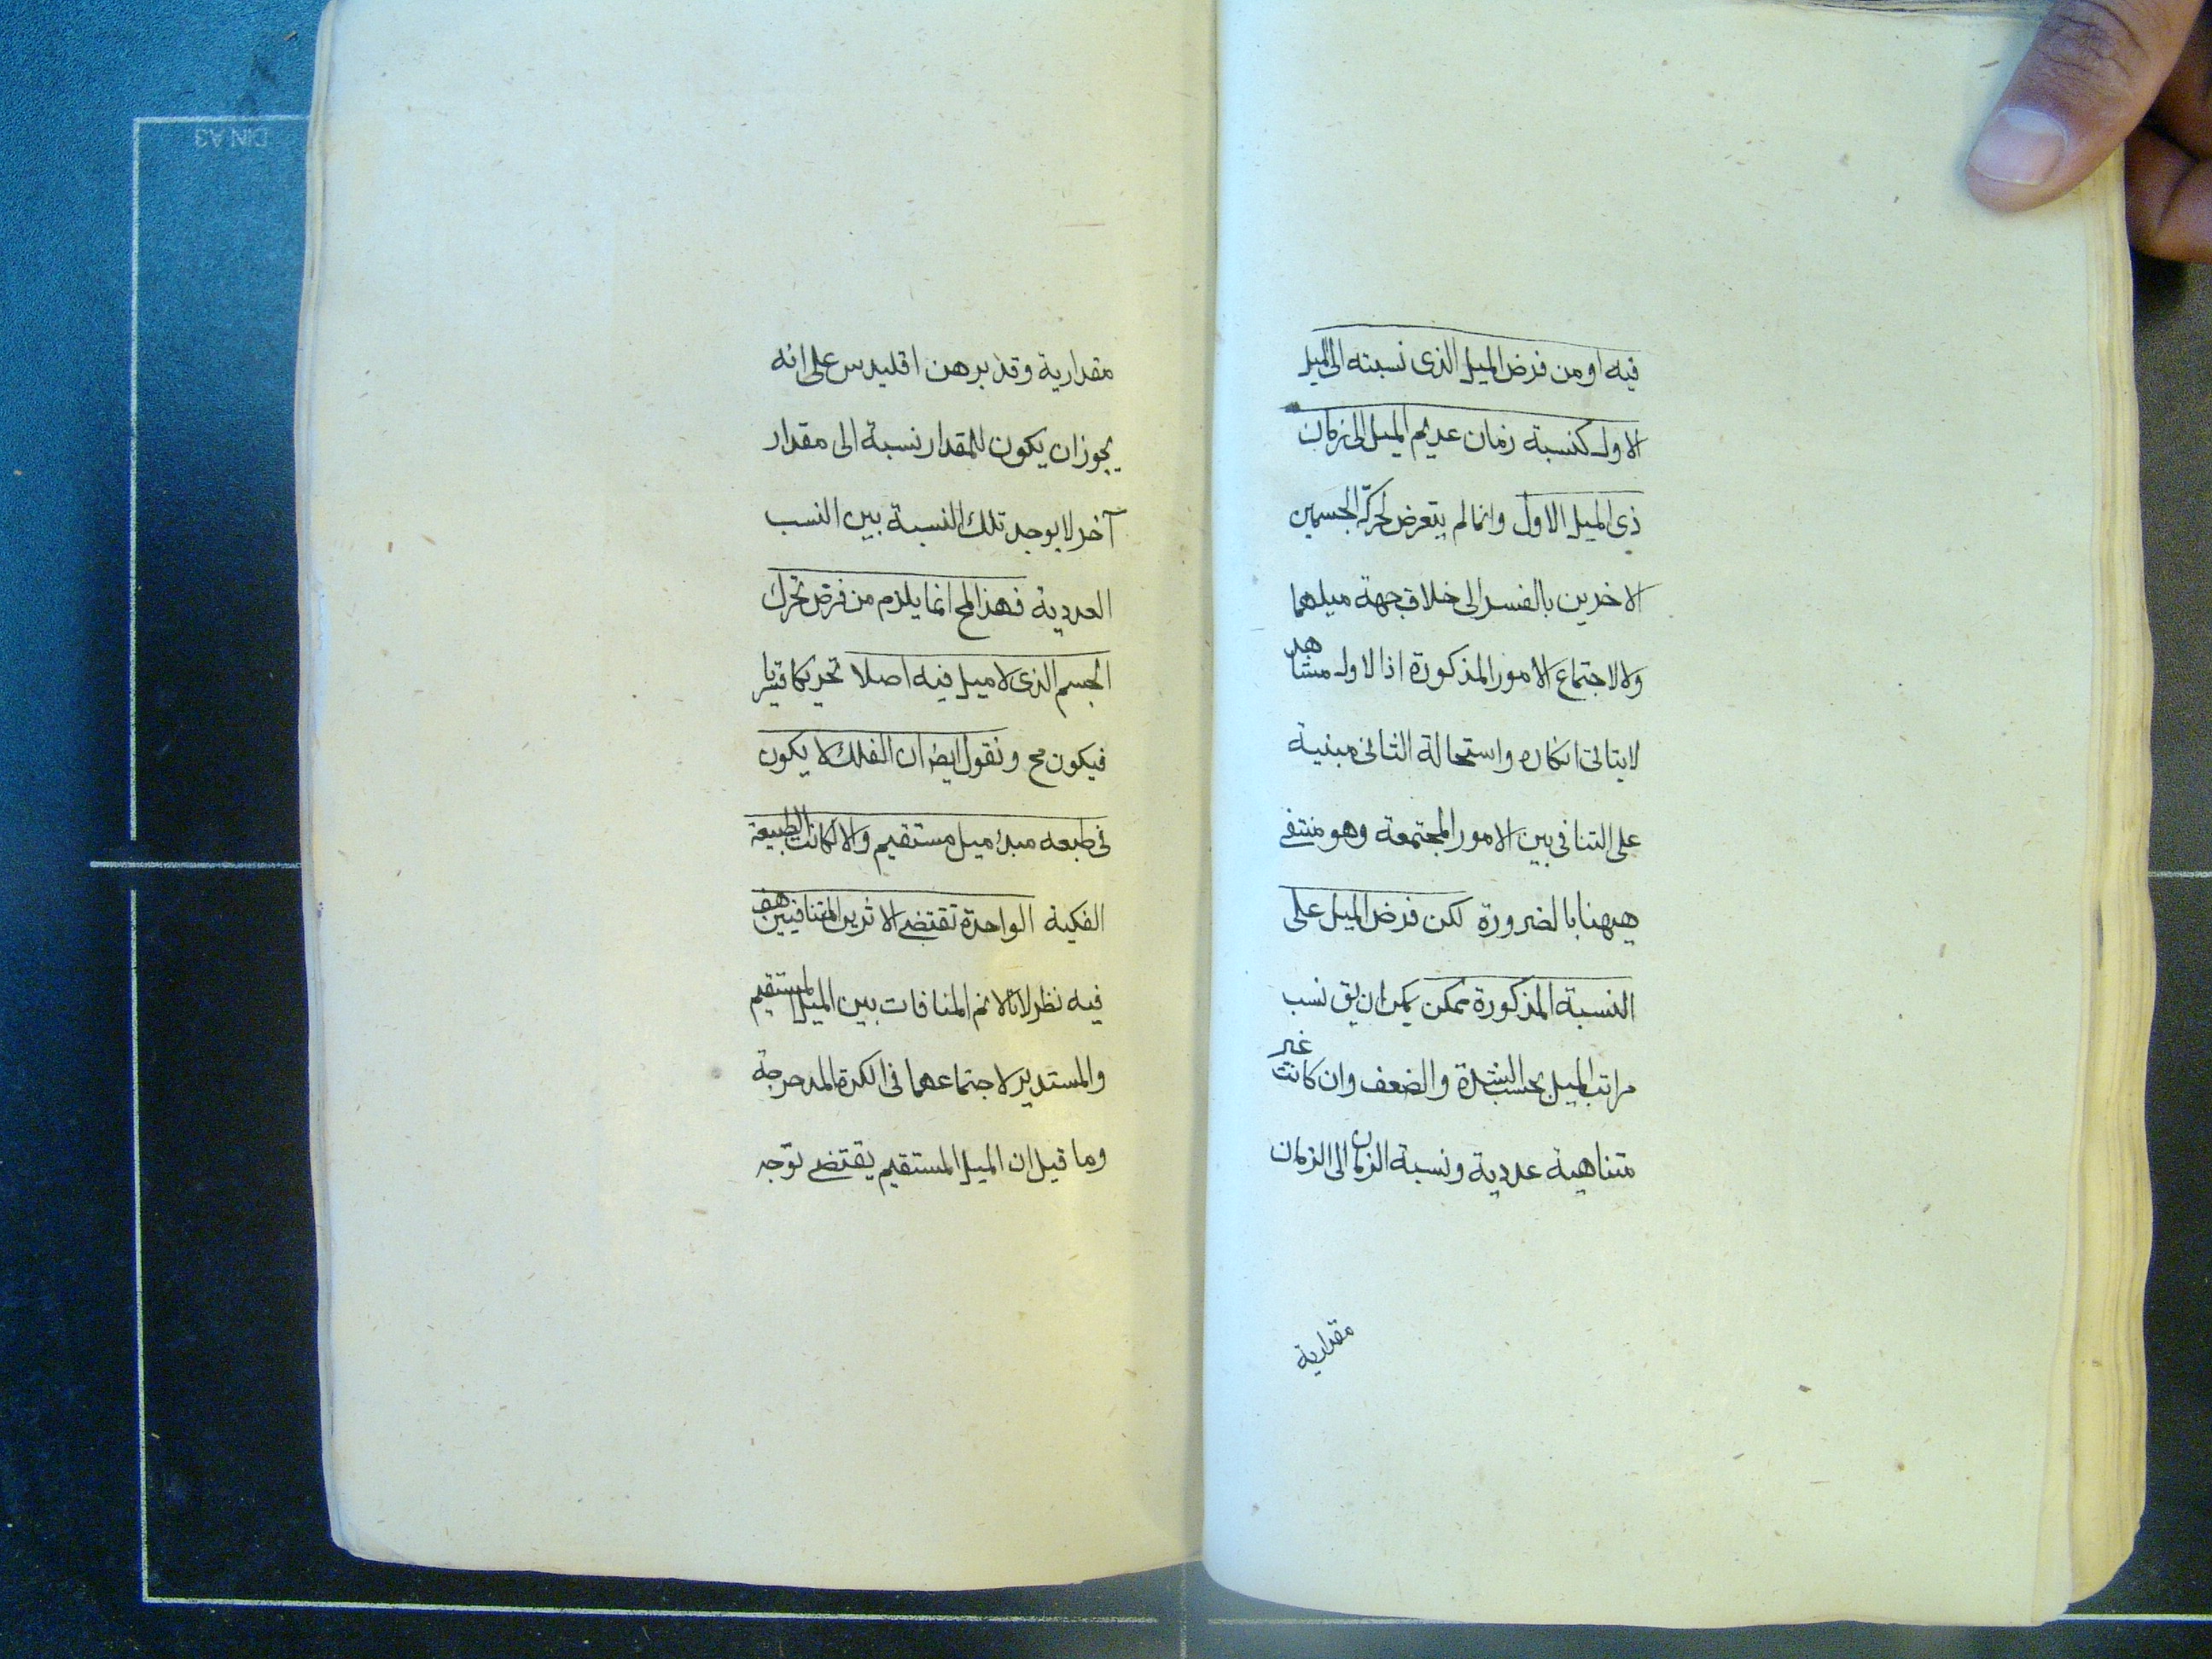 فيه او من فرض الميل الذى نسبته الى الميل
الاول كنسبة زمان عديم الميل الى زمان
ذى الميل الاول وانما لم يتعرض لحركة الجسمين
الاخرين بالقسر الى خلاف جهة ميلهما
ولا لاجتماع الامور المذكورة اذ الاول مشاهد
لا يتاتى انكاره واستحالة الثانى مبنية
على التنافى بين الامور المجتمعة وهو منتفى
هيهنا بالضرورة لكن فرض الميل على
النسبة المذكورة ممكن يمكن ان يق نسب
مراتب الميل بحسب الشدة والضعف وان كانت غير
متناهية عددية ونسبة الزمان الى الزمان
مقدارية
مقدارية وقد برهن اقليدس على انه
يجوز ان يكون للمقدار نسبة الى مقدار
آخر لا يوجد تلك النسبة بين النسب
العددية فهذا المح انما يلزم من فرض تحرك
الجسم الذى لا ميل فيه اصلا تحريكا قسريا
فيكون مح ونقول ايضا ان الفلك لا يكون
فى طبعه مبدء ميل مستقيم والا لكانت الطبيعة
الفكية الواحدة تقتضى الاثرين المتنافيين هف
فيه نظر لانا لا نم المنافات بين الميل المستقيم
والمستدير لاجتماعهما فى الكرة المدحرجة
وما قيل ان الميل المستقيم يقتضى توجه